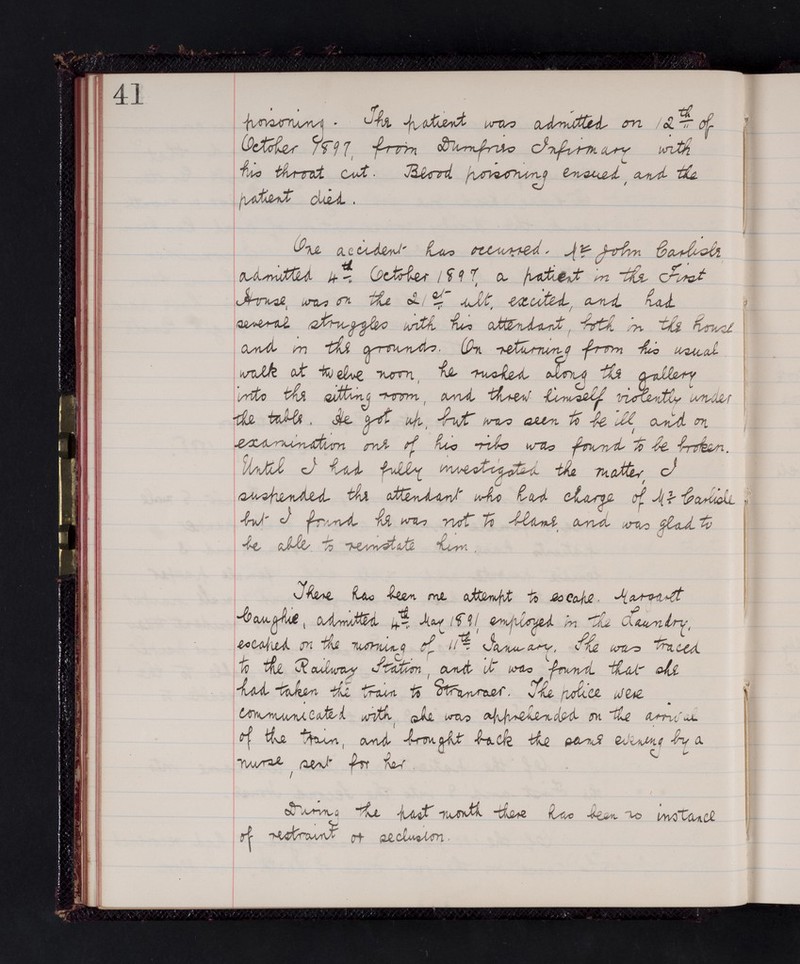 41
poisoning. The patient was admitted on 12th of
October 1897, from Dumfries Infirmary with
his throat cut. Blood poisoning ensued, and the
patient died.
One accident has occurred. Mr John Carlisle
admitted 4th October 1897, a patient in the First
House, was on the 21st ult, excited, and had
several struggles with his attendant, both in the house
and in the grounds. On returning from his usual
walk at twelve noon, he rushed along the gallery
into the sitting room, and threw himself violently under
the table. He got up, but was seen to be ill, and on
examination one of his ribs was found to be broken.
Until I had fully investigated the matter, I
suspended the attendant who had charge of Mr Carlisle
but I found he was not to blame, and was glad to
be able to reinstate him.
There has been one attempt to escape. Margaret
Caughie, admitted 4th May 1891, employed in the Laundry,
escaped on the morning of 11th January. She was traced
to the Railway Station, and it was found that she
had taken the train to Stranraer. The police were
communicated with, she was apprehended on the arrival
of the train, and brought back the same evening by a
nurse, sent for her.
During the past month there has been no instance
of restraint or seclusion.